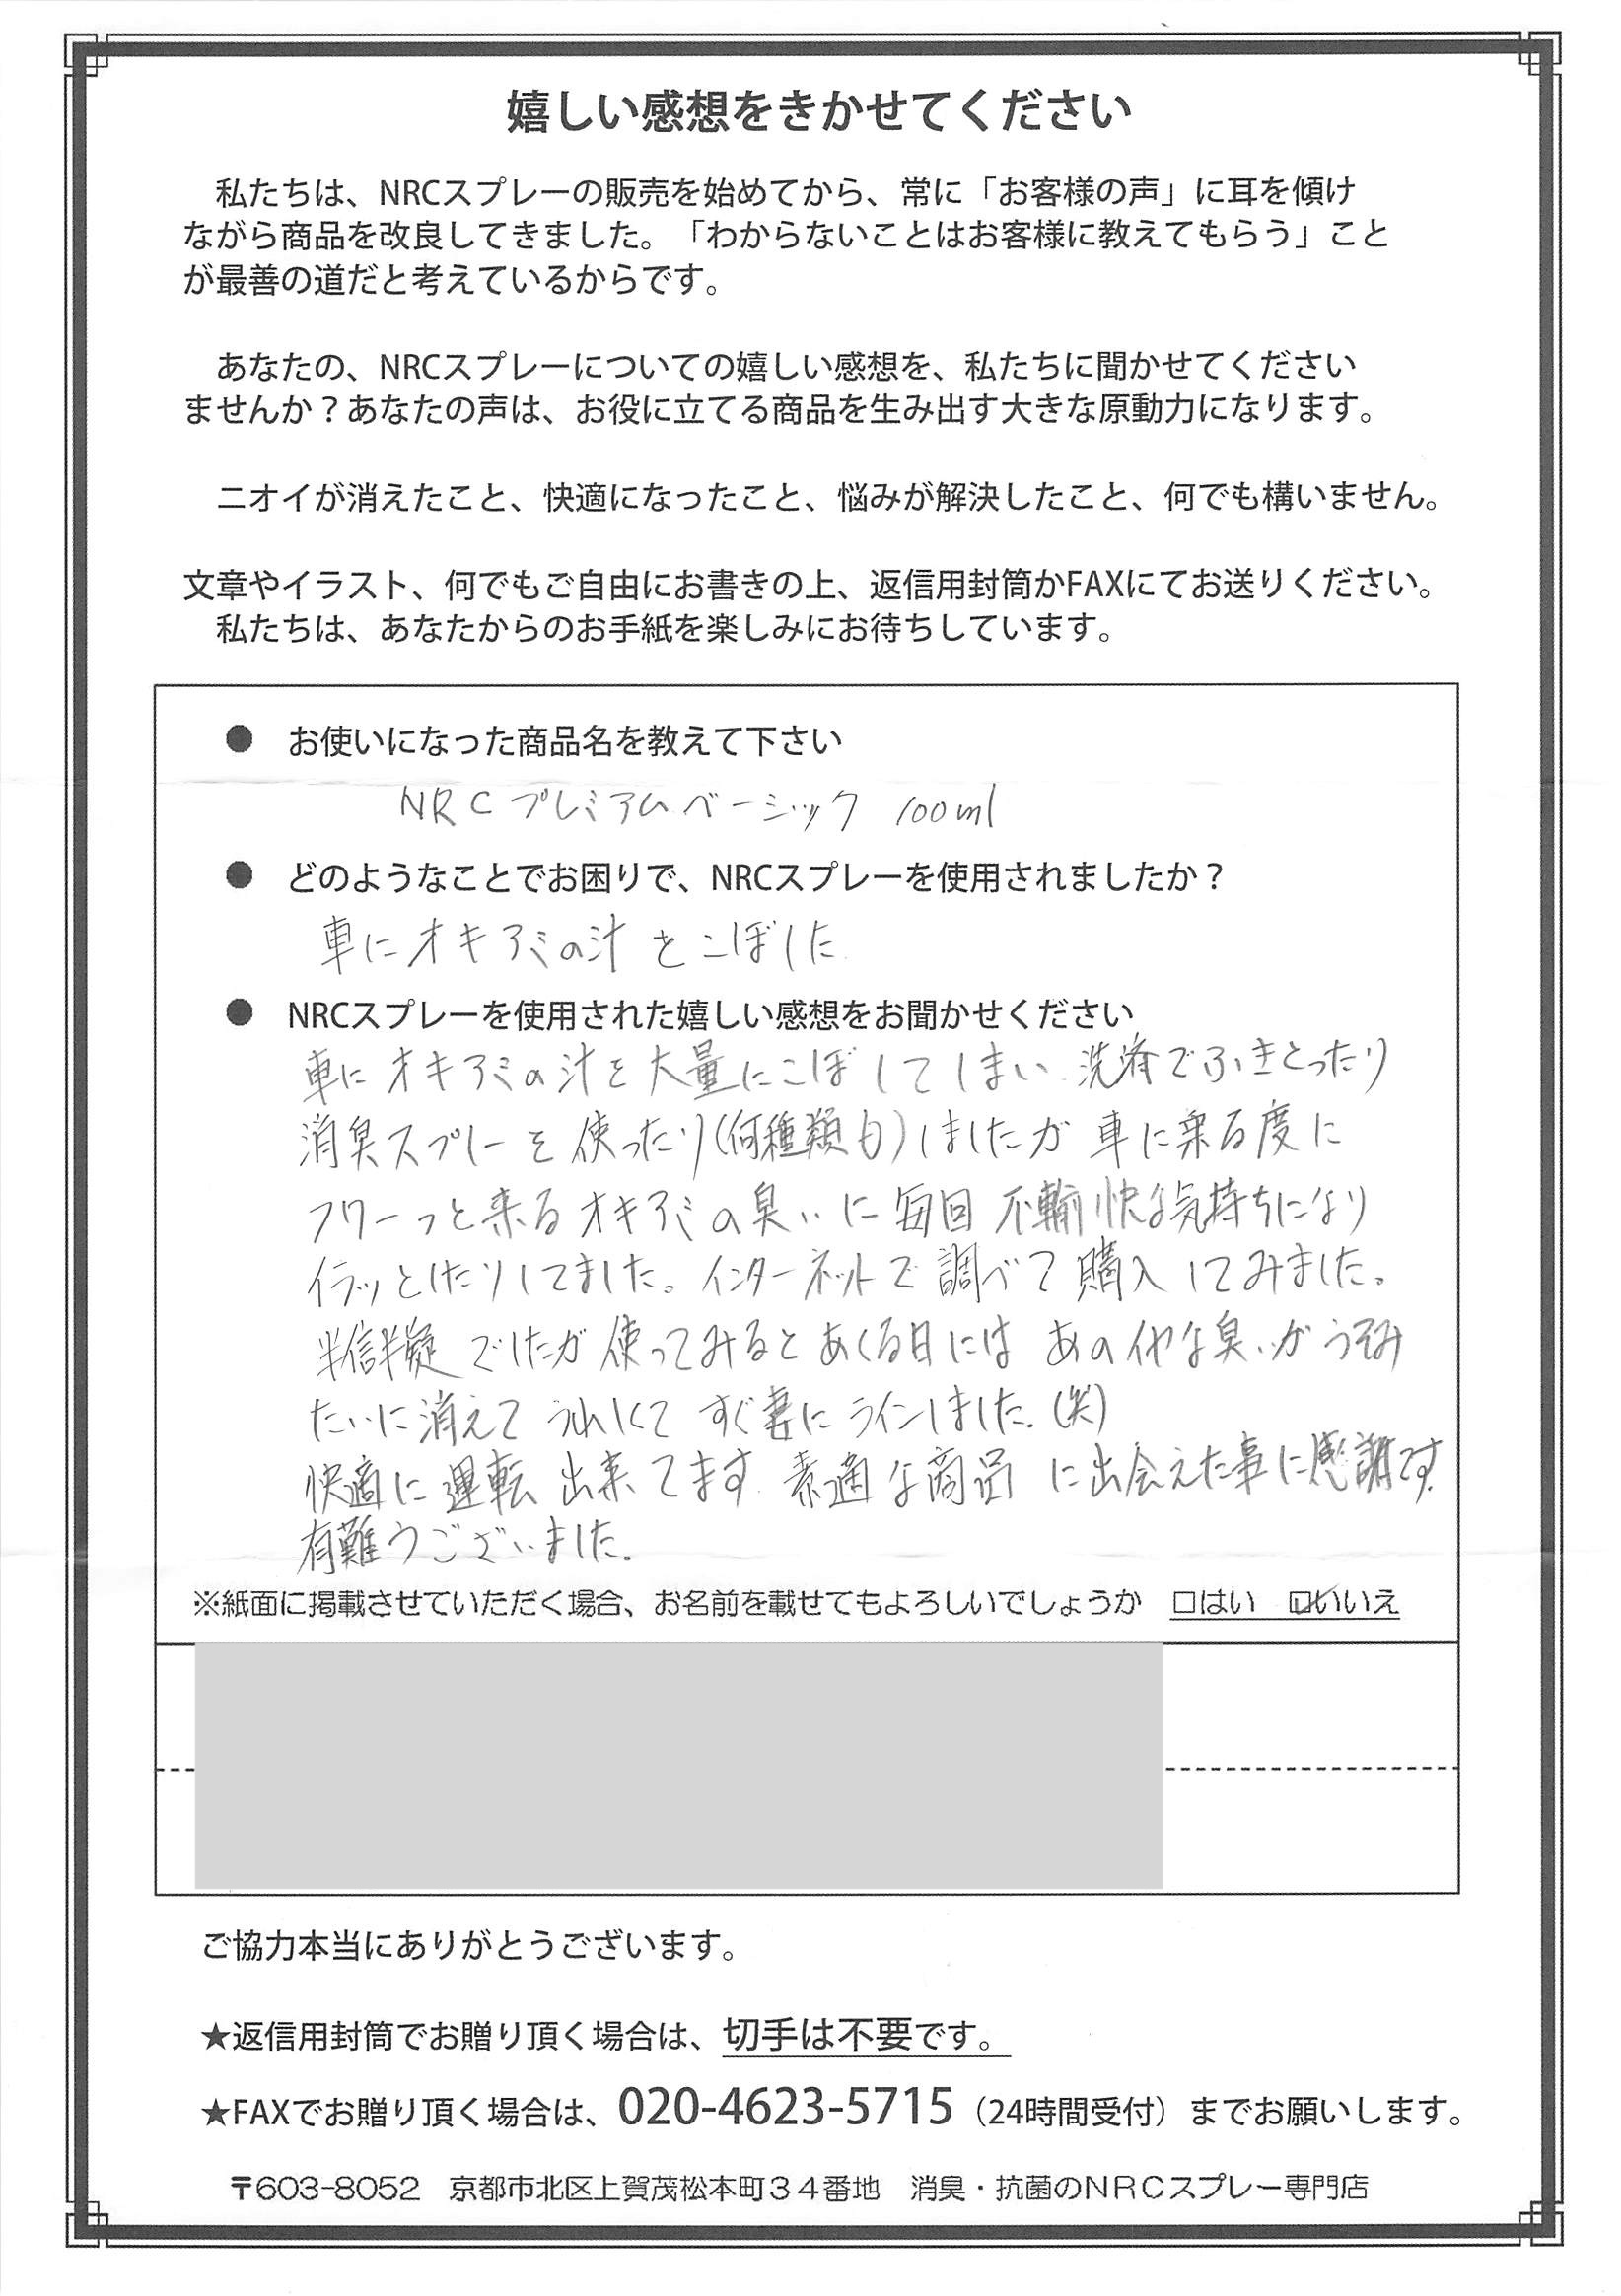 嬉しい感想をきかせてください
私たちは、NRCスプレーの販売を始めてから、常に「お客様の声」に耳を傾け
ながら商品を改良してきました。「わからないことはお客様に教えてもらう」こと
が最善の道だと考えているからです。
あなたの、NRCスプレーについての嬉しい感想を、私たちに聞かせてください
ませんか？あなたの声は、お役に立てる商品を生み出す大きな原動力になります。
ニオイが消えたこと、快適になったこと、悩みが解決したこと、何でも構いません。
文章やイラスト、何でもご自由にお書きの上、返信用封筒かFAXにてお送りください。
私たちは、あなたからのお手紙を楽しみにお待ちしています。
● お使いになった商品名を教えて下さい
NRCプレミアムベーシック 100ml
● どのようなことでお困りで、NRCスプレーを使用されましたか？
車にオキアミの汁をこぼした
● NRCスプレーを使用された嬉しい感想をお聞かせください
車にオキアミの汁を大量にこぼしてしまい 洗済でふきとったり
消臭スプレーを使ったり(何種類も)しましたが 車に乗る度に
フワーっと来るオキアミの臭いに毎回 不輸快な気持ちになり
イラッとしたりしてました。インターネットで調べて購入してみました。
半信半疑でしたが 使ってみるとあくる日には あの イヤな臭いがうそみ
たいに消えて うれしくて すぐ妻にラインしました.(笑)
快適に運転出来てます. 素適な商品に出会えた事に感謝です.
有難うございました.
※紙面に掲載させていただく場合、お名前を載せてもよろしいでしょうか □はい ☑いいえ
ご協力本当にありがとうございます。
★返信用封筒でお贈り頂く場合は、切手は不要です。
★FAXでお贈り頂く場合は、020-4623-5715（24時間受付）までお願いします。
〒603-8052 京都市北区上賀茂松本町３４番地 消臭・抗菌のＮＲＣスプレー専門店